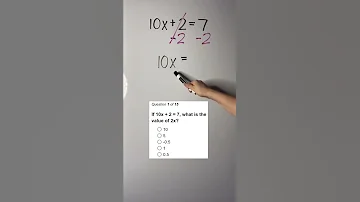 10x + 2 = 7
-2 -2
10x =
Question 1 of 15
If 10x + 2 = 7, what is the
value of 2x?
10
5
-0.5
1
0.5